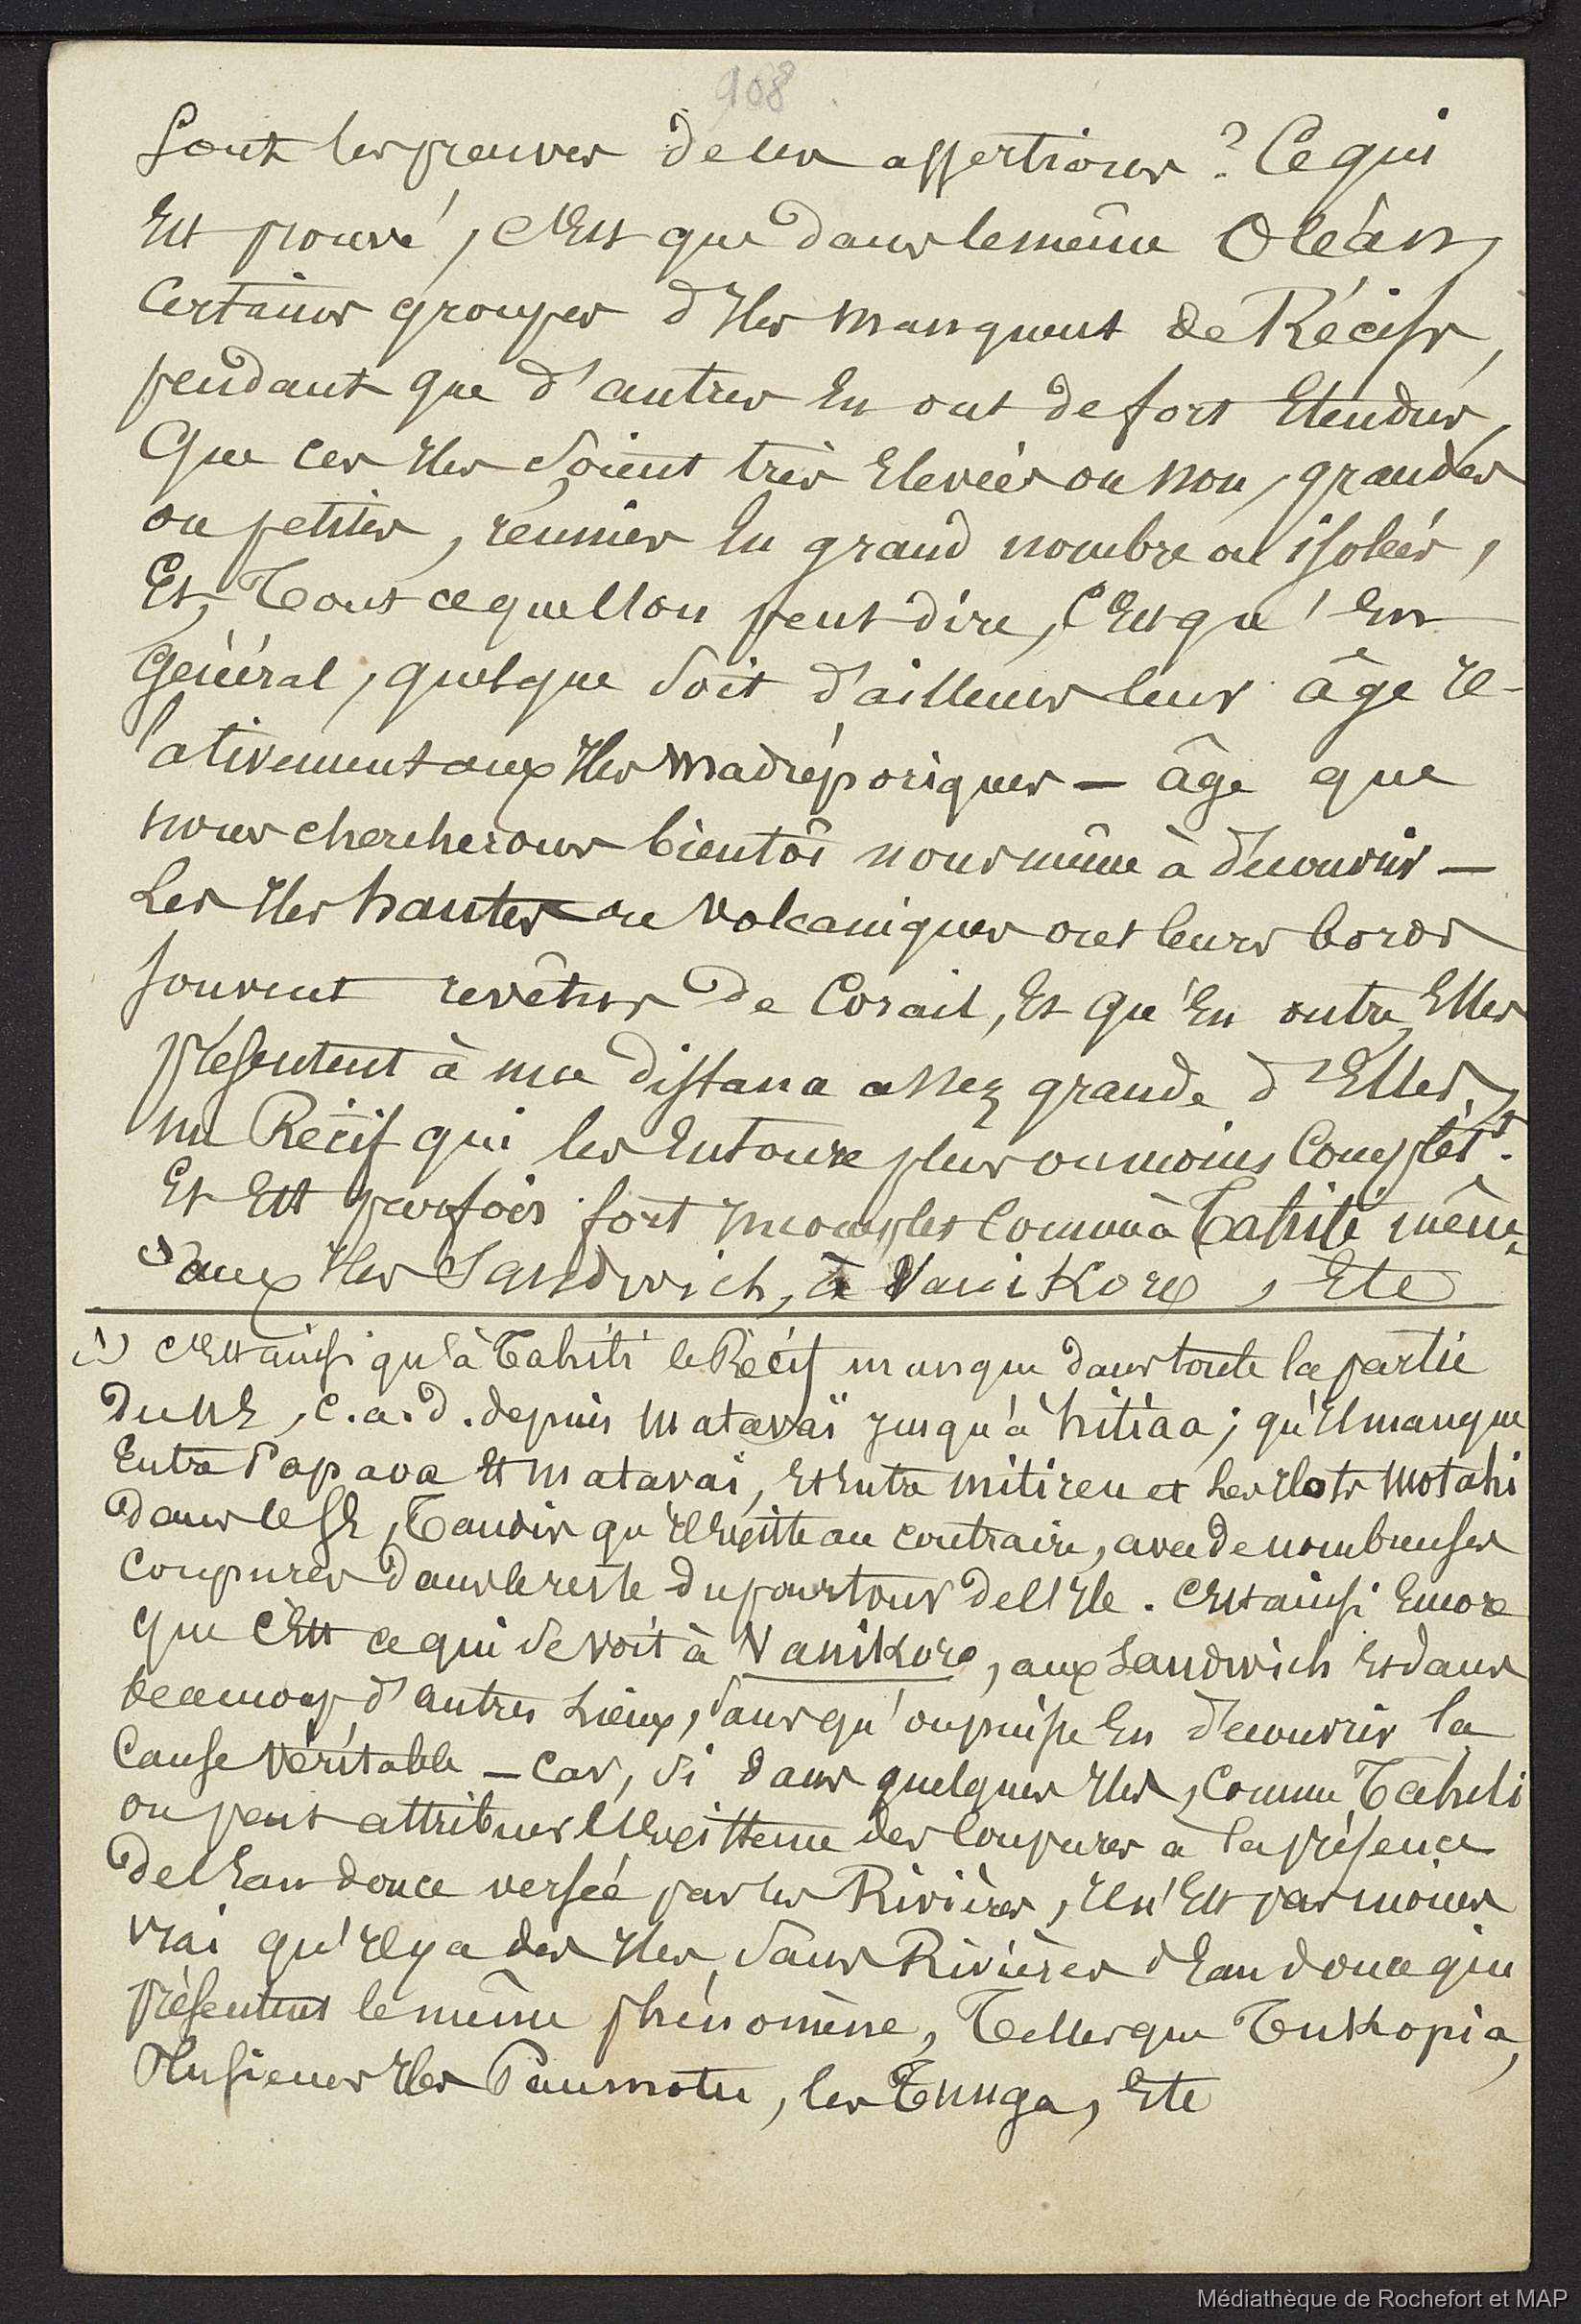 908
Sont les preuves de ces assertions ? Ce qui
Est prouvé, c'Est que dans le même Océan,
Certains groupes d'Iles manquent de Récifs,
pendant que d'autres En ont de fort Etendus,
Que ces Iles Soient très Elevées ou non, grandes
ou petites, reunies En grand nombre ou isolées,
Et, Tout ce que l'on peut dire, C'Est qu'En
Général, quelque Soit d'ailleurs leur âge re-
lativement aux Iles Madréporiques — âge que
nous chercherons bientôt nous même à découvrir —
Les Iles hautes ou Volcaniques ont leurs bords
souvent revêtus de Corail, Et qu'En outre, Elles
présentent à une distance assez grande d'Elles,
un Récif qui les Entoure plus ou moins Complèt.t
Et Est parfois fort incomplet Comme à Tahiti même,
(1) aux Iles Sandwich, à Vanikoro, Etc
(1) C'Est ainsi qu'à Tahiti le Récif manque dans toute la partie
Du NE, c.a.d. depuis Matavaï jusqu'à hitiaa ; qu'Il manque
Entre Papava Et Matavai, Et Entre Mitireu et Les Ilots Motahi
Dans le SE, Tandis qu'Il Existe au contraire, avec de nombreuses
Coupures dans le reste du pourtour de l'Ile. C'Est ainsi Encore
que C'Est ce qui Se voit à Vanikoro, aux Sandwich Et dans
beaucoup d'autres Lieux, Sans qu'on puisse En découvrir la
Cause Véritable — Car, Si dans quelques Iles, Comme Tahiti
on peut attribuer l'Existence des Coupures à la présence
De l'Eau douce versée par les Rivières, Il n'Est pas moins
vrai qu'Il y a des Iles Sans Rivières d'Eau douce qui
présentent le même phénomène, Telles que Tukopia,
Plusieurs Iles Paumotu, les Tunga, Etc
Médiathèque de Rochefort et MAP